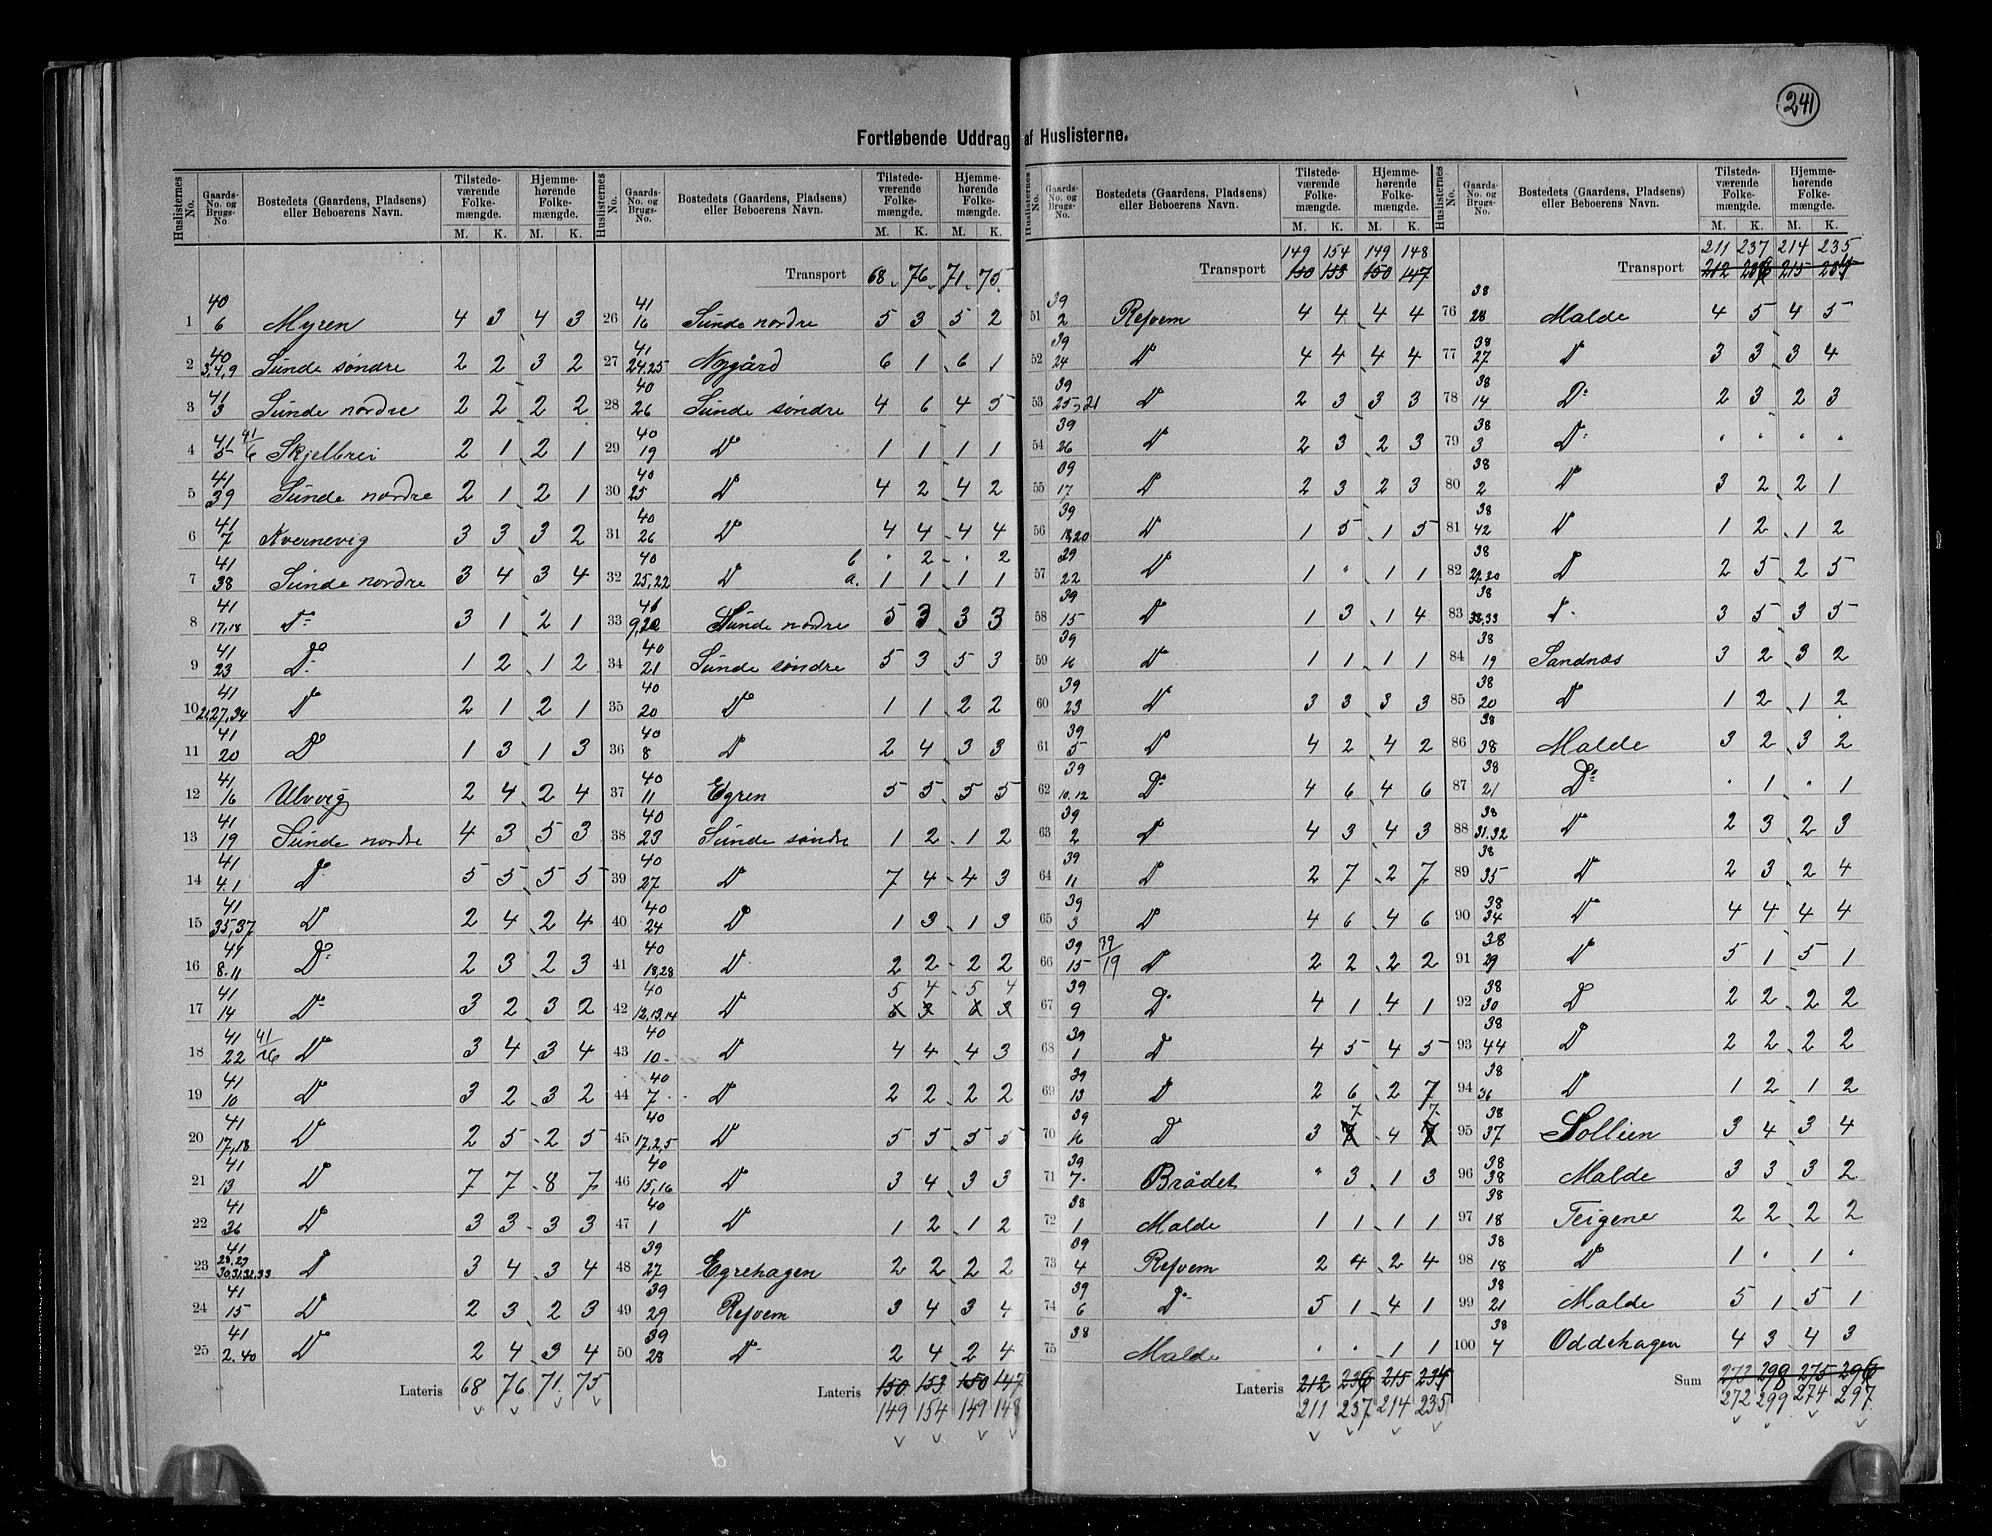 241
Fortløbende Uddrag af Huslisterne.
Huslisternes No. | Gaards-No. og Brugs-No. | Bostedets (Gaardens, Pladsens) eller Beboerens Navn. | Tilstedeværende Folkemængde. M. K. | Hjemmehørende Folkemængde. M. K.
1 40/6 Myren 4 3 4 3
2 40/3,4,9 Sunde søndre 2 2 3 2
3 41/3 Sunde nordre 2 2 2 2
4 41/5 41/6 Skjelbrei 2 1 2 1
5 41/39 Sunde nordre 2 1 2 1
6 41/7 Kvernevig 3 3 3 2
7 41/38 Sunde nordre 3 4 3 4
8 41/17,18 Do 3 1 2 1
9 41/23 Do 1 2 1 2
10 41/21,27,34 Do 2 1 2 1
11 41/20 Do 1 3 1 3
12 41/16 Ulvvig 2 4 2 4
13 41/19 Sunde nordre 4 3 5 3
14 41/4.1 Do 5 5 5 5
15 41/35,37 Do 2 4 2 4
16 41/8.11 Do 2 3 2 3
17 41/14 Do 3 2 3 2
18 41/22 41/26 Do 3 4 3 4
19 41/10 Do 3 2 3 2
20 41/17,18 Do 2 5 2 5
21 41/13 Do 7 7 8 7
22 41/36 Do 3 3 3 3
23 41/28,29 30,31,32,33 Do 3 4 3 4
24 41/15 Do 2 3 2 3
25 41/2.40 Do 2 4 3 4
Lateris 68 76 71 75
Huslisternes No. | Gaards-No. og Brugs-No. | Bostedets (Gaardens, Pladsens) eller Beboerens Navn. | Tilstedeværende Folkemængde. M. K. | Hjemmehørende Folkemængde. M. K.
Transport 68 76 71 75
26 41/16 Sunde nordre 5 3 5 2
27 41/24.25 Nygård 6 1 6 1
28 40/26 Sunde søndre 4 6 4 5
29 40/19 Do 1 1 1 1
30 40/25 Do 4 2 4 2
31 40/26 Do 4 4 4 4
b " 2 " 2
32 40/25,22 Do a. 1 1 1 1
33 41/9,22 Sunde nordre 5 3 3 3
34 40/21 Sunde søndre 5 3 5 3
35 40/20 Do 1 1 2 2
36 40/8 Do 2 4 3 3
37 40/11 Egren 5 5 5 5
38 40/23 Sunde søndre 1 2 1 2
39 40/27 Do 7 4 4 3
40 40/24 Do 1 3 1 3
41 40/18,28 Do 2 2 2 2
5 4 5 4
42 40/12,13,14 Do 6 3 6 3
43 40/10 Do 4 4 4 3
44 40/7 Do 2 2 2 2
45 40/17,2,5 Do 5 5 5 5
46 40/15,16 Do 3 4 3 3
47 40/1 Do 1 2 1 2
48 39/27 Egrehagen 2 2 2 2
49 39/29 Refvem 3 4 3 4
50 39/28 Do 2 4 2 4
Lateris 150 153 150 147
149 154 149 148
Huslisternes No. | Gaards-No. og Brugs-No. | Bostedets (Gaardens, Pladsens) eller Beboerens Navn. | Tilstedeværende Folkemængde. M. K. | Hjemmehørende Folkemængde. M. K.
149 154 149 148
Transport 150 153 150 147
51 39/2 Refvem 4 4 4 4
52 39/24 Do 4 4 4 4
53 39/25,21 Do 2 3 3 3
54 39/26 Do 2 3 2 3
55 39/17 Do 2 3 2 3
56 39/18,20 Do 1 5 1 5
57 39/22 Do 1 " 1 1
58 39/15 Do 1 3 1 4
59 39/16 Do 1 1 1 1
60 39/23 Do 3 3 3 3
61 39/5 Do 4 2 4 2
62 39/10,12 Do 4 6 4 6
63 39/2 Do 4 3 4 3
64 39/11 Do 2 7 2 7
65 39/3 Do 4 6 4 6
66 39/15 39/19 Do 2 2 2 2
67 39/9 Do 4 1 4 1
68 39/1 Do 4 5 4 5
69 39/13 Do 2 6 2 7
7 7
70 39/16 Do 3 4
71 39/7 Brådet " 3 1 3
72 38/1 Malde 1 1 1 1
73 39/4 Refvem 2 4 2 4
74 39/6 Do 5 1 4 1
75 38 Malde " " 1 1
Lateris 212 236 215 234
211 237 214 235
Huslisternes No. | Gaards-No. og Brugs-No. | Bostedets (Gaardens, Pladsens) eller Beboerens Navn. | Tilstedeværende Folkemængde. M. K. | Hjemmehørende Folkemængde. M. K.
211 237 214 235
Transport 212 236 215 234
76 38/28 Malde 4 5 4 5
77 38/27 Do 3 3 3 4
78 38/14 Do 2 3 2 3
79 38/3 Do " " " "
80 38/2 Do 3 2 2 1
81 38/42 Do 1 2 1 2
82 38/29,20 Do 2 5 2 5
83 38/38,33 Do 3 5 3 5
84 38/19 Sandnæs 3 2 3 2
85 38/20 Do 1 2 1 2
86 38/38 Malde 3 2 3 2
87 38/21 Do " 1 " 1
88 38/31,32 Do 2 3 2 3
89 38/35 Do 2 3 2 4
90 38/34 Do 4 4 4 4
91 38/29 Do 5 1 5 1
92 38/30 Do 2 2 2 2
93 38/44 Do 2 2 2 2
94 38/36 Do 1 2 1 2
95 38/37 Sollien 3 4 3 4
96 38/38 Malde 3 3 3 2
97 38/18 Teigene 2 2 2 2
98 38/18 Do 1 " 1 "
99 38/21 Malde 5 1 5 1
100 38/4 Oddehagen 4 3 4 3
Sum 273 298 275 296
272 299 274 297
b